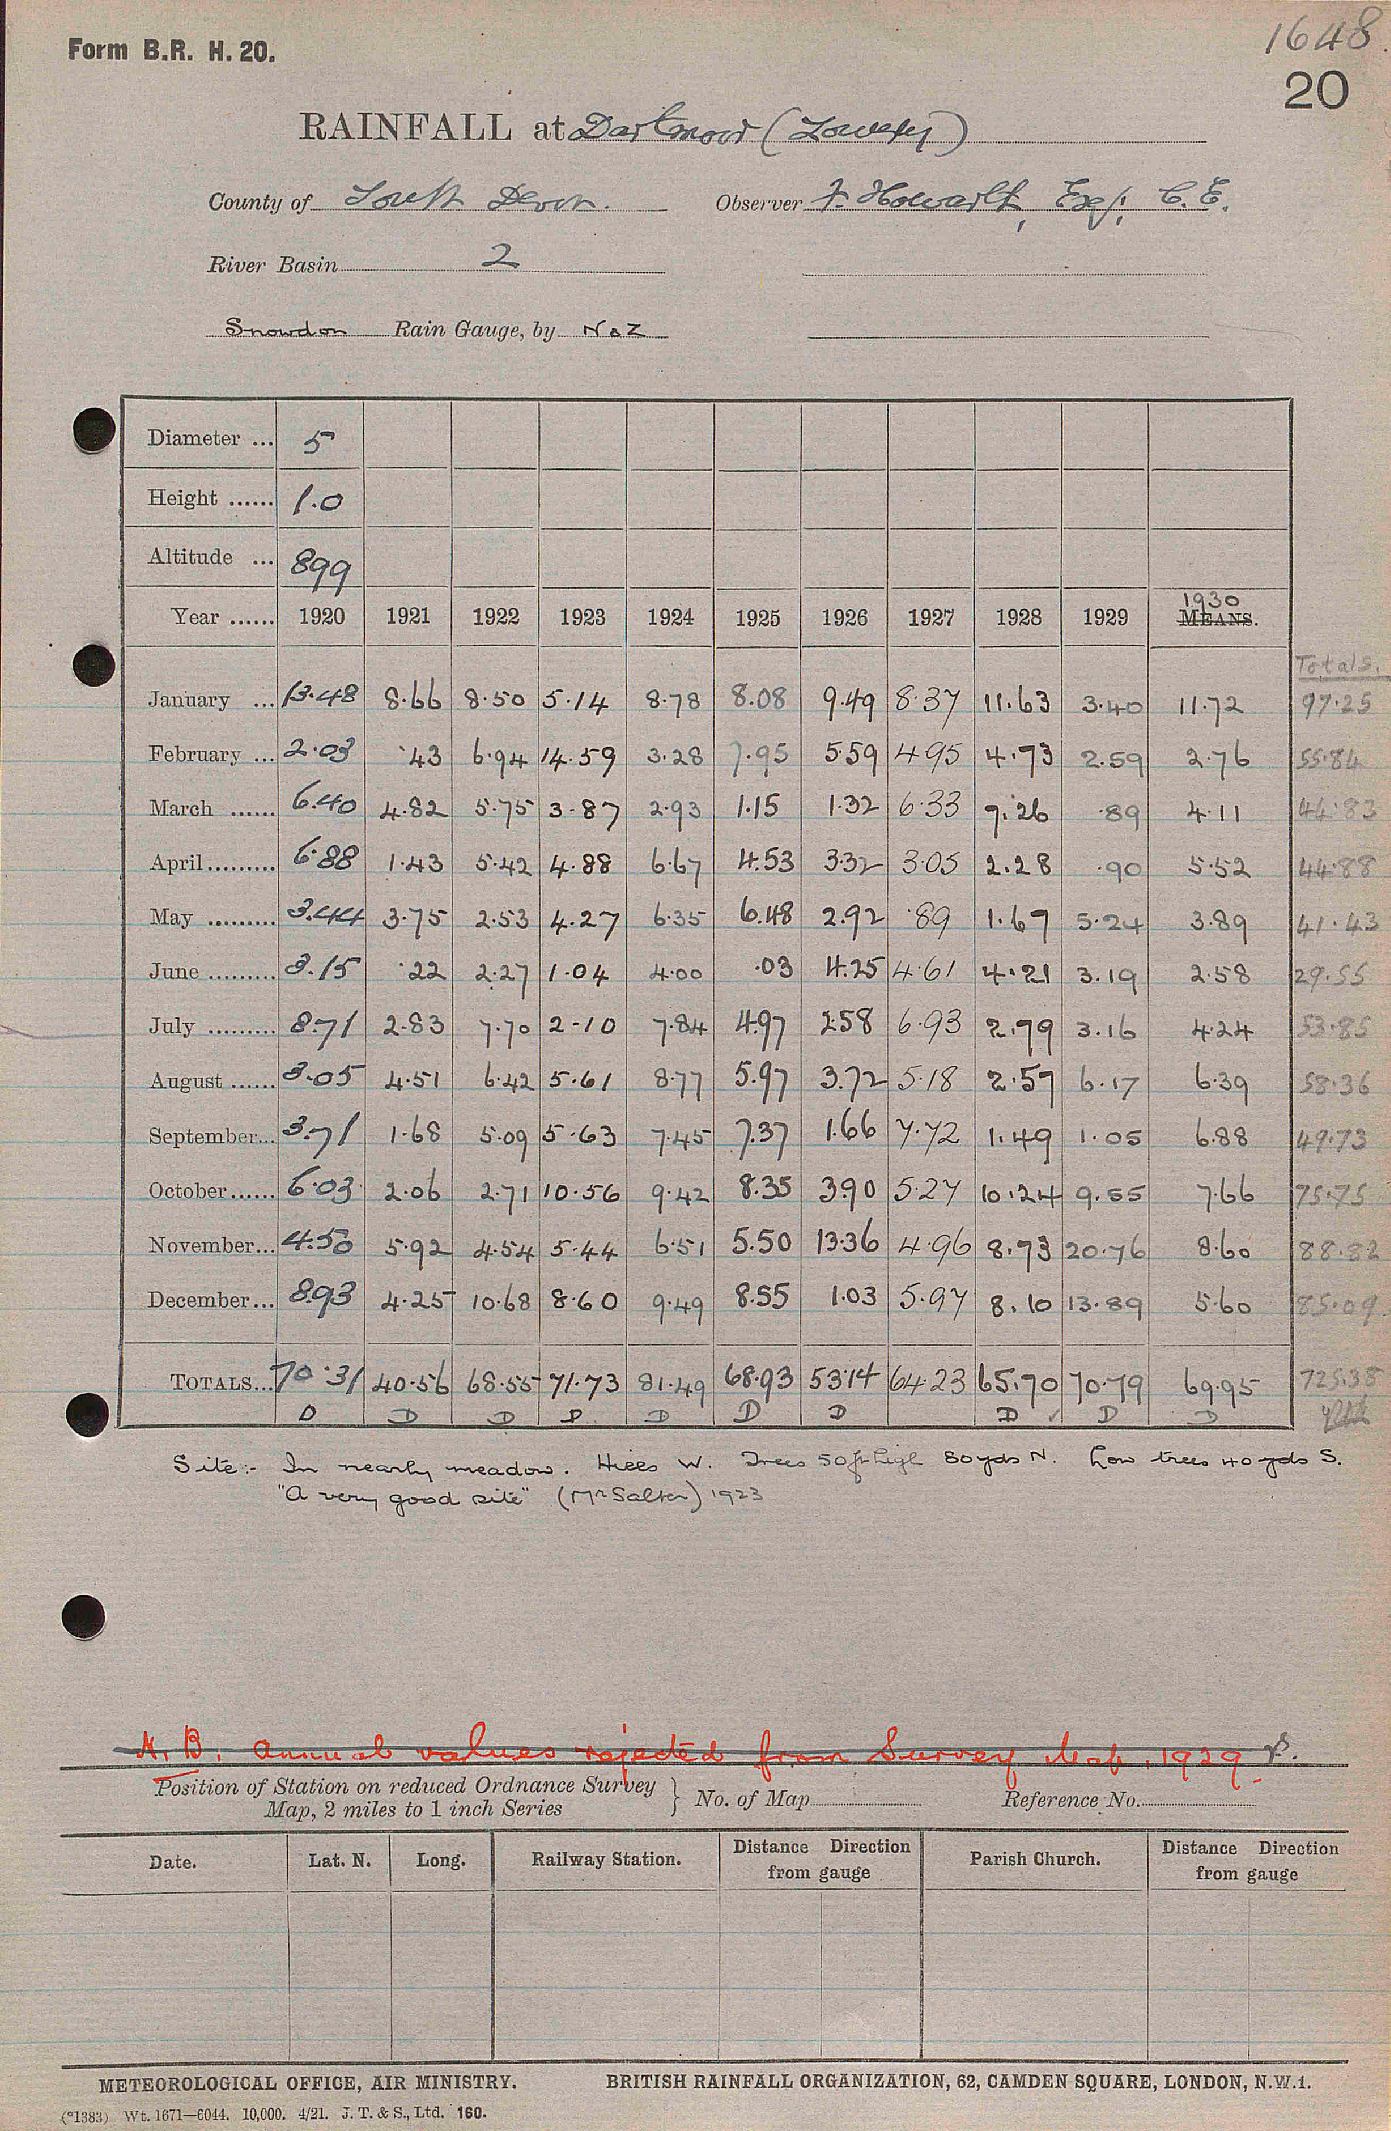 Form B.R. H. 20.
1648.
20
RAINFALL at Dartmoor (Lowery)
County of South Devon. Observer F. Howarth, Esq; C.E.
River Basin 2
Snowdon Rain Gauge, by N & Z
Diameter ... 5
Height ...... 1.0
Altitude ... 899
Year ...... 1920 1921 1922 1923 1924 1925 1926 1927 1928 1929 1930 MEANS.
Totals.
January ... 13.48 8.66 8.50 5.14 8.78 8.08 9.49 8.37 11.63 3.40 11.72 97.25
February ... 2.03 .43 6.94 14.59 3.28 7.95 5.59 4.95 4.73 2.59 2.76 55.84
March ...... 6.40 4.82 5.75 3.87 2.93 1.15 1.32 6.33 7.26 .89 4.11 44.83
April......... 6.88 1.43 5.42 4.88 6.67 4.53 3.32 3.05 2.28 .90 5.52 44.88
May ......... 3.44 3.75 2.53 4.27 6.35 6.48 2.92 .89 1.67 5.24 3.89 41.43
June ......... 3.15 .22 2.27 1.04 4.00 .03 4.25 4.61 4.21 3.19 2.58 29.55
July ......... 8.71 2.83 7.70 2-10 7.84 4.97 2.58 6.93 2.79 3.16 4.24 53.85
August ...... 3.05 4.51 6.42 5.61 8.77 5.97 3.72 5.18 2.57 6.17 6.39 58.36
September... 3.71 1.68 5.09 5.63 7.45 7.37 1.66 7.72 1.49 1.05 6.88 49.73
October...... 6.03 2.06 2.71 10.56 9.42 8.35 3.90 5.27 10.24 9.55 7.66 75.75
November... 4.50 5.92 4.54 5.44 6.51 5.50 13.36 4.96 8.73 20.76 8.60 88.82
December... 8.93 4.25 10.68 8.60 9.49 8.55 1.03 5.97 8.10 13.89 5.60 85.09.
TOTALS... 70.31 40.56 68.55 71.73 81.49 68.93 53.14 64.23 65.70 70.79 69.95 725.38
D D D D D D D D ✓ D D
Site:- In nearly meadow. Hills W. Trees 50 ft high 80 yds N. Low trees 40 yds S.
"A very good site" (Mr Salter) 1923
N.B. Annual values rejected from Survey Map, 1929 P.
Position of Station on reduced Ordnance Survey
Map, 2 miles to 1 inch Series } No. of Map Reference No.
Date. Lat. N. Long. Railway Station. Distance Direction from gauge Parish Church. Distance Direction from gauge
METEOROLOGICAL OFFICE, AIR MINISTRY. BRITISH RAINFALL ORGANIZATION, 62, CAMDEN SQUARE, LONDON, N.W.1.
(*1383) Wt. 1671—6044. 10,000. 4/21. J. T. & S., Ltd. 160.